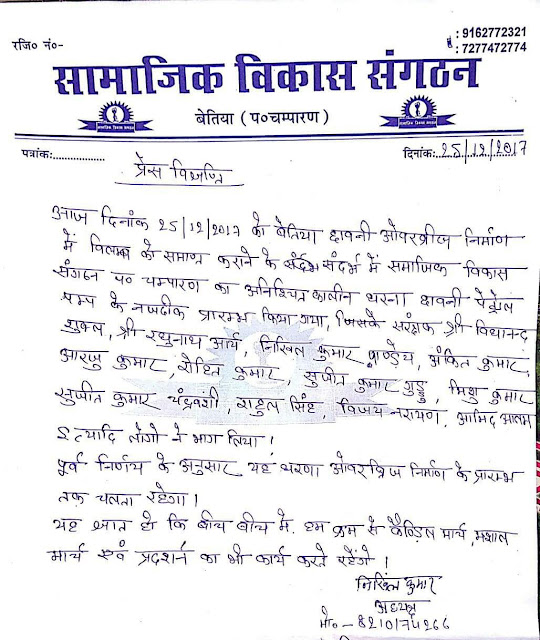 रजि० नं०-
: 9162772321
: 7277472774
सामाजिक विकास संगठन
बेतिया ( प०चम्पारण )
पत्रांकः..................
दिनांकः 25/12/2017
प्रेस विज्ञप्ति
आज दिनांक 25/12/2017 को बेतिया छावनी ओवरब्रीज निर्माण
में विलम्ब को समाप्त कराने के संदर्भ में समाजिक विकास
संगठन प० चम्पारण का अनिश्चित कालीन धरना छावनी पेट्रोल
पम्प के नजदीक प्रारम्भ किया गया, जिसके संरक्षक श्री विद्यानन्द
शुक्ल, श्री रघुनाथ आर्य, निखिल कुमार पाण्डेय, अंकित कुमार,
आरजु कुमार, रोहित कुमार, सुजीत कुमार गुड्डु, मिशु कुमार
सुजीत कुमार चंद्रवंशी, राहुल सिंह, विजय नारायण, आमिद आलम
इत्यादि लोगो ने भाग लिया।
पूर्व निर्णय के अनुसार यह धरणा ओवरब्रिज निर्माण के प्रारम्भ
तक चलता रहेगा।
यह ध्यान हो कि बीच बीच में हम क्रम से कैण्डिल मार्च, मशाल
मार्च एवं प्रदर्शन का भी कार्य करते रहेंगे।
निखिल कुमार
अध्यक्ष
मो०-8210174266